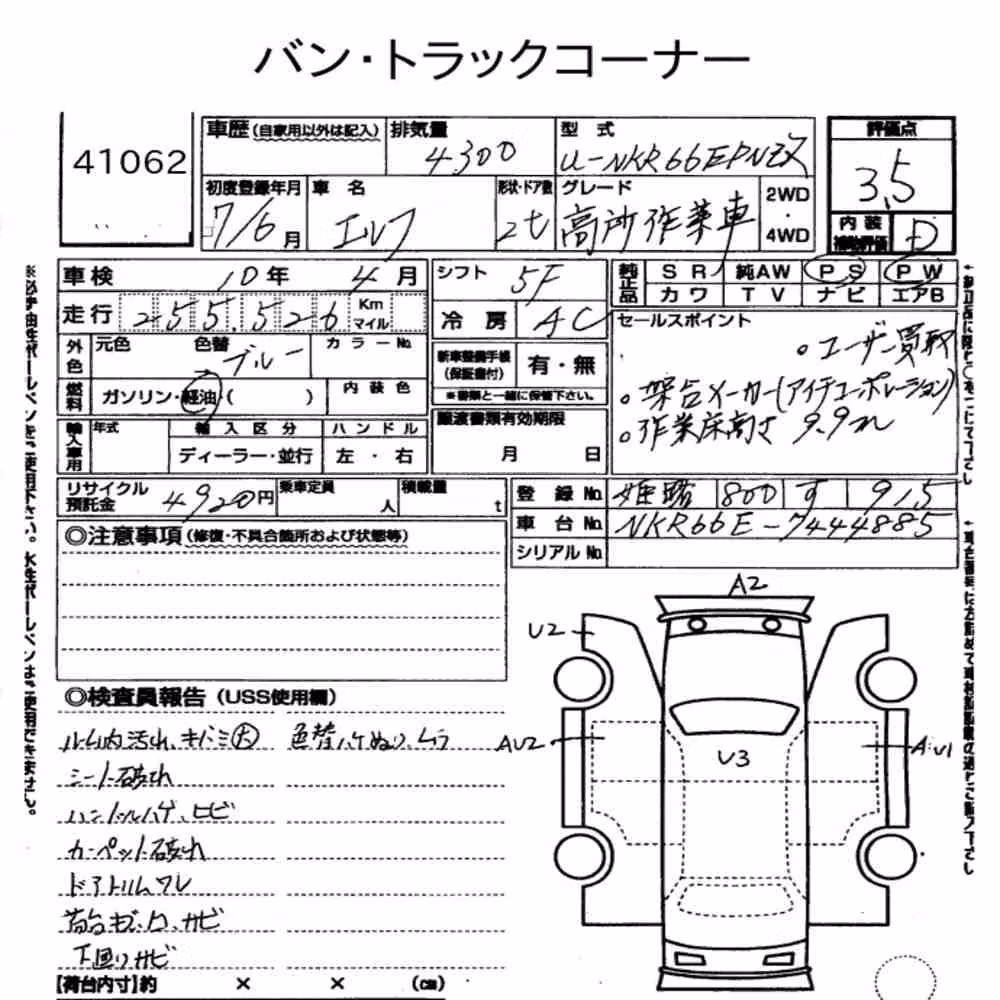 バン・トラックコーナー
41062
車歴(自家用以外は記入)
排気量
4300
型式
U-NKR66EPN改
評価点
3.5
初度登録年月
7/6月
車名
エルフ
形状・ドア数
2t
グレード
高所作業車
2WD
・
4WD
内装
補助評価
D
車検
10年 4月
シフト
5F
純正品
SR 純AW PS PW
カワ TV ナビ エアB
走行
255,526
Km
マイル
冷房
AC
セールスポイント
。ユーザー買取
。架台メーカー(アイチコーポレーション)
。作業床高さ 9.9m
外色
元色
色替
ブルー
カラーNo.
新車整備手帳
(保証書付)
有・無
※書類と一緒に保管下さい。
燃料
ガソリン・軽油・( )
内装色
輸入車用
年式
輸入区分
ハンドル
ディーラー・並行
左・右
譲渡書類有効期限
月 日
リサイクル
預託金
4920円
乗車定員
人
積載量
t
登録No.
姫路 800 す 915
車台No.
NKR66E-7444885
シリアルNo.
◎注意事項(修復・不具合箇所および状態等)
◎検査員報告(USS使用欄)
ルーム内汚れ、キバミ大
色替ハケぬり、ムラ
シート破れ
ハンドルハゲ、ヒビ
カーペット破れ
ドアトリムワレ
荷台キズ、凹、サビ
下回りサビ
【荷台内寸】約 × × (cm)
A2
U2
AU2
U3
AU1
※必ず油性ボールペンをご使用下さい。水性ボールペンはご使用できません。